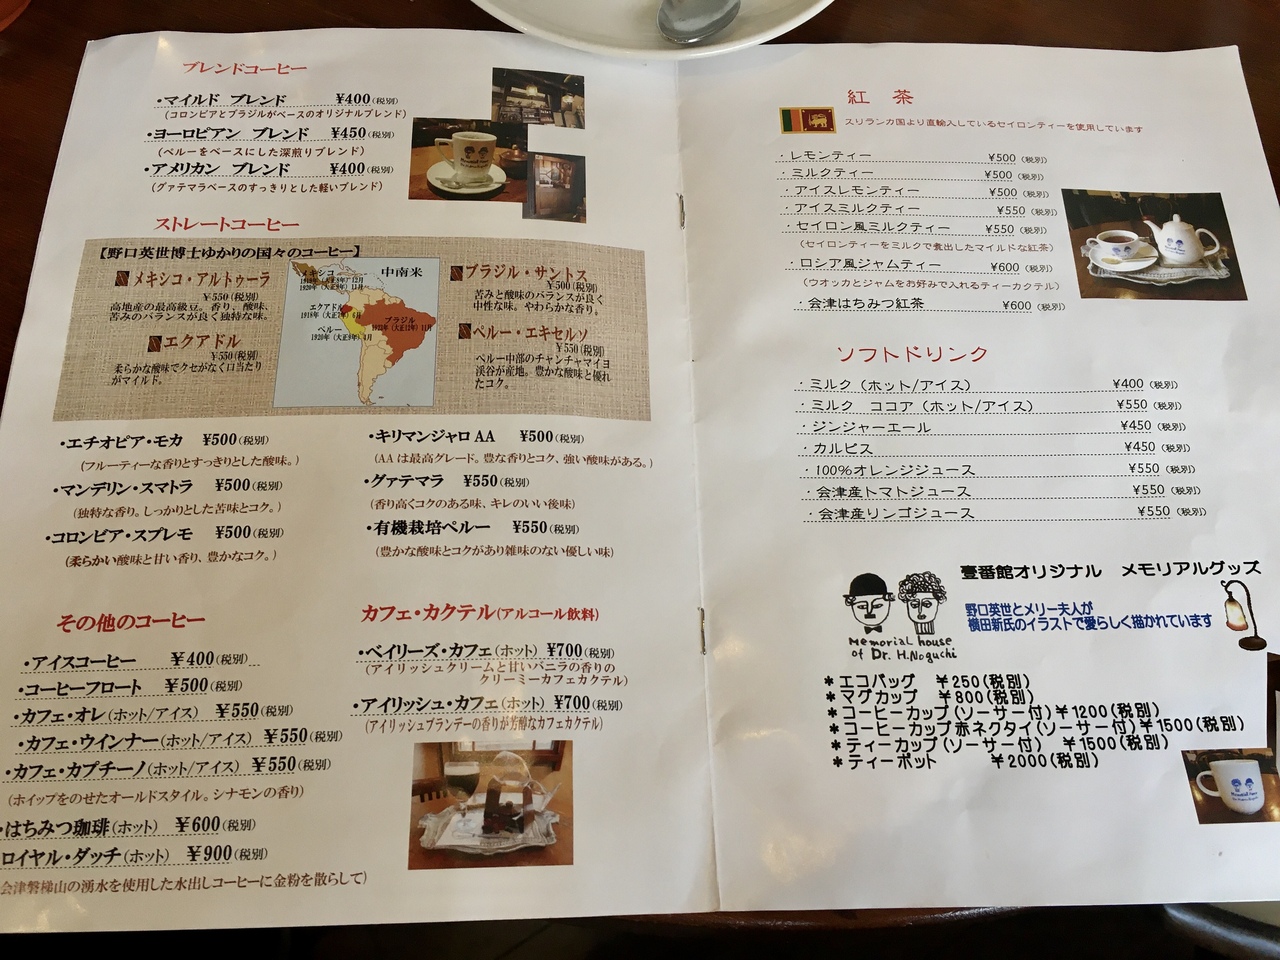 ブレンドコーヒー
・マイルド ブレンド ¥400(税別)
(コロンビアとブラジルがベースのオリジナルブレンド)
・ヨーロピアン ブレンド ¥450(税別)
(ペルーをベースにした深煎りブレンド)
・アメリカン ブレンド ¥400(税別)
(グァテマラベースのすっきりとした軽いブレンド)
ストレートコーヒー
【野口英世博士ゆかりの国々のコーヒー】
メキシコ・アルトゥーラ
¥550(税別)
高地産の最高級豆。香り、酸味、
苦みのバランスが良く独特な味。
エクアドル
¥550(税別)
柔らかな酸味でクセがなく口当たり
がマイルド。
中南米
メキシコ
エクアドル
ペルー
ブラジル
ブラジル・サントス
¥500(税別)
苦みと酸味のバランスが良く
中性な味。やわらかな香り。
ペルー・エキセルソ
¥550(税別)
ペルー中部のチャンチャマイヨ
渓谷が産地。豊かな酸味と優れ
たコク。
・エチオピア・モカ ¥500(税別)
(フルーティーな香りとすっきりとした酸味。)
・マンデリン・スマトラ ¥500(税別)
(独特な香り。しっかりとした苦味とコク。)
・コロンビア・スプレモ ¥500(税別)
(柔らかい酸味と甘い香り、豊かなコク。)
・キリマンジャロ AA ¥500(税別)
(AA は最高グレード。豊な香りとコク、強い酸味がある。)
・グァテマラ ¥550(税別)
(香り高くコクのある味、キレのいい後味)
・有機栽培ペルー ¥550(税別)
(豊かな酸味とコクがあり雑味のない優しい味)
その他のコーヒー
・アイスコーヒー ¥400(税別)
・コーヒーフロート ¥500(税別)
・カフェ・オレ(ホット/アイス) ¥550(税別)
・カフェ・ウインナー(ホット/アイス) ¥550(税別)
・カフェ・カプチーノ(ホット/アイス) ¥550(税別)
(ホイップをのせたオールドスタイル。シナモンの香り)
・はちみつ珈琲(ホット) ¥600(税別)
ロイヤル・ダッチ(ホット) ¥900(税別)
会津磐梯山の湧水を使用した水出しコーヒーに金粉を散らして)
カフェ・カクテル(アルコール飲料)
・ベイリーズ・カフェ(ホット) ¥700(税別)
(アイリッシュクリームと甘いバニラの香りの
クリーミーカフェカクテル)
・アイリッシュ・カフェ(ホット) ¥700(税別)
(アイリッシュブランデーの香りが芳醇なカフェカクテル)
紅 茶
スリランカ国より直輸入しているセイロンティーを使用しています
・レモンティー ¥500(税別)
・ミルクティー ¥500(税別)
・アイスレモンティー ¥500(税別)
・アイスミルクティー ¥550(税別)
・セイロン風ミルクティー ¥550(税別)
(セイロンティーをミルクで煮出したマイルドな紅茶)
・ロシア風ジャムティー ¥600(税別)
(ウオッカとジャムをお好みで入れるティーカクテル)
・会津はちみつ紅茶 ¥600(税別)
ソフトドリンク
・ミルク(ホット/アイス) ¥400(税別)
・ミルク ココア(ホット/アイス) ¥550(税別)
・ジンジャーエール ¥450(税別)
・カルピス ¥450(税別)
・100%オレンジジュース ¥550(税別)
・会津産トマトジュース ¥550(税別)
・会津産リンゴジュース ¥550(税別)
壹番館オリジナル メモリアルグッズ
野口英世とメリー夫人が
横田新氏のイラストで愛らしく描かれています
Memorial house
of Dr. H.Noguchi
*エコバッグ ¥250(税別)
*マグカップ ¥800(税別)
*コーヒーカップ(ソーサー付)¥1200(税別)
*コーヒーカップ赤ネクタイ(ソーサー付)¥1500(税別)
*ティーカップ(ソーサー付) ¥1500(税別)
*ティーポット ¥2000(税別)